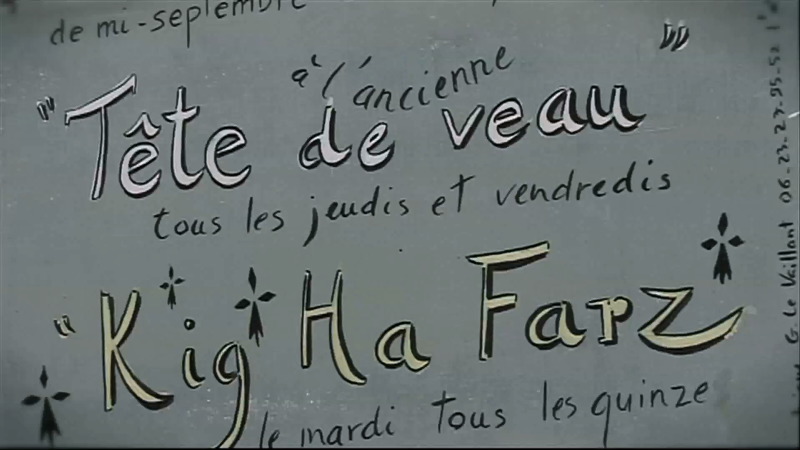 de mi-septembre
à l'ancienne
"Tête de veau"
tous les jeudis et vendredis
"Kig Ha Farz
le mardi tous les quinze
G. Le Vaillant 06-23-23-95-52